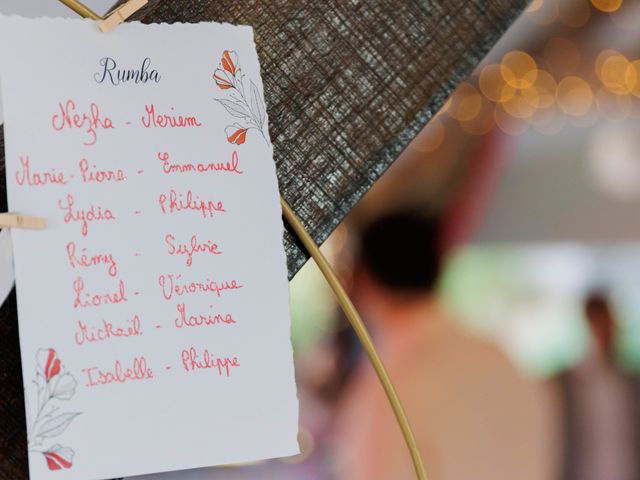 Rumba
Nezha - Meriem
Marie-Pierre - Emmanuel
Lydia - Philippe
Rémy - Sylvie
Lionel - Véronique
Mickaël - Marina
Isabelle - Philippe